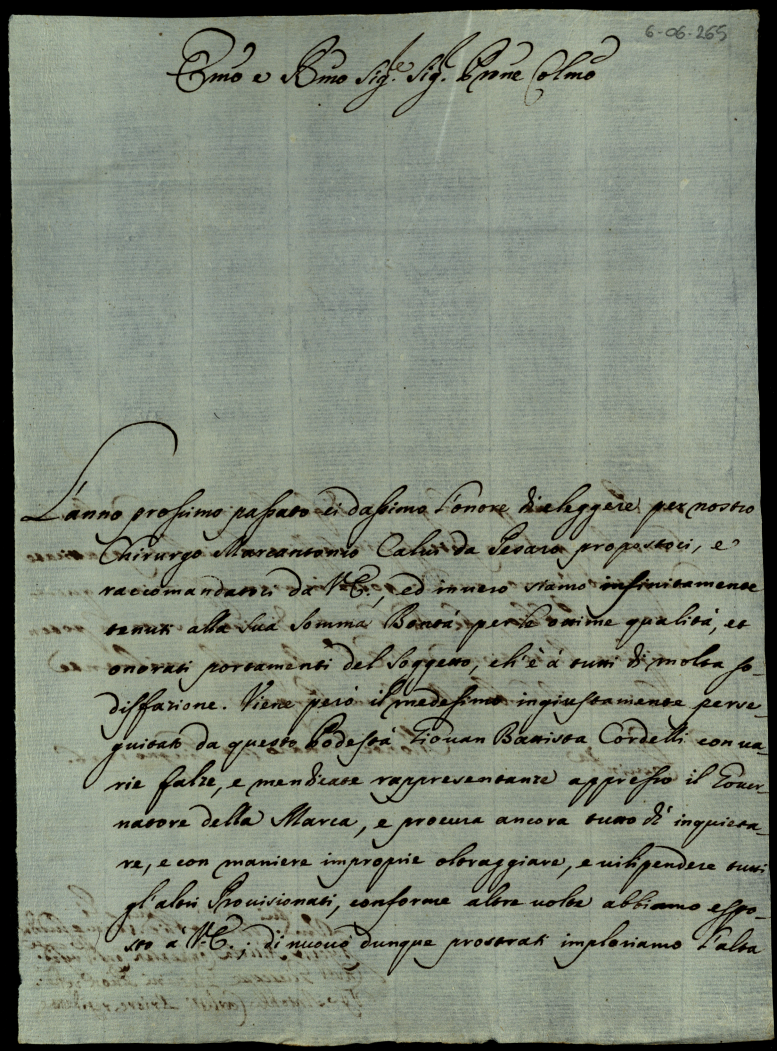 6-06-265
Emo e Rmo Sigre Sigr Prone Colmo
L'anno prossimo passato ci dassimo l'onore di eleggere per nostro
Chirurgo Marcantonio Calvi da Pesaro propostoci, e
raccomandatoci da V. E., ed invero siamo infinitamente
tenuti alla sua somma Bontà per le ottime qualità, et
onorati portamenti del Soggetto, ch'è à tutti di molta so-
disfazione. Viene però il medesimo ingiustamente perse-
guitato da questo Podestà Giovan Battista Cordelli con va-
rie false, e mendicate rappresentanze appresso il Gover-
natore della Marca, e procura ancora tutto dì inquieta-
re, e con maniere improprie oltraggiare, e vilipendere tutti
gl'altri Provisionati, conforme altre volte abbiamo espo-
sto a V. E.: di nuovo dunque prostrati imploriamo l'alta